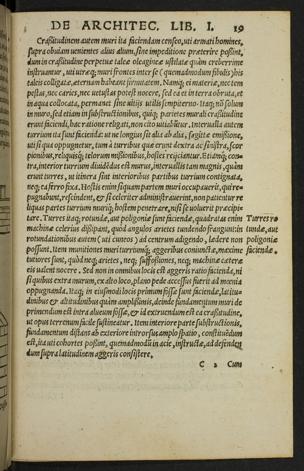 DE ARCHITEC. LIB. I. 19
Crassitudinem autem muri ita faciendam censeo, uti armati homines,
supra obviam uenientes alius alium, sine impeditione præterire possint,
dum in crassitudine perpetuæ taleæ oleagineæ ustilatæ quàm creberrime
instruantur, uti utræq; muri frontes inter se (quemadmodum fibulis) his
taleis colligatæ, æternam habeant firmitatem. Namq; ei materiæ nec tem
pestas, nec caries, nec uetustas potest nocere, sed ea et in terra obruta, et
in aqua collocata, permanet sine uitijs utilis sempiterno. Itaq; nō solum
in muro, sed etiam in substructionibus, quiq; parietes murali crassitudine
erunt faciendi, hac ratione religati, non cito uitiabūtur. Interualla autem
turrium ita sunt facienda: ut ne longius sit alia ab alia, sagittæ emissione,
uti si qua oppugnetur, tum à turribus quæ erunt dextra ac sinistra, scor
pionibus, reliquisq; telorum missionibus, hostes reijciantur. Etiamq; con-
tra, interior turrium diuidēdus est murus, interuallis tam magnis, quàm
erunt turres, ut itinera sint interioribus partibus turrium contignata,
neq; ea ferro fixa. Hostis enim si quam partem muri occupauerit, qui re-
pugnabunt, rescindent, et si celeriter administrauerint, non patiētur re
liquas partes turrium muriq; hostem penetrare, nisi se uoluerit præcipi-
tare. Turres itaq; rotundæ, aut poligoniæ sunt faciendæ, quadratas enim
machinæ celerius dissipant, quòd angulos arietes tundendo frangunt: in
rotundationibus autem (uti cuneos) ad centrum adigendo, lædere non
possunt. Item munitiones muri turriumq; aggeribus coniunctæ, maximè
tutiores sunt, quòd neq; arietes, neq; suffossiones, neq; machinæ cæteræ
eis ualent nocere. Sed non in omnibus locis est aggeris ratio facienda, ni
si quibus extra murum, ex alto loco, plano pede accessus fuerit ad mœnia
oppugnanda. Itaq; in eiusmodi locis primum fossæ sunt faciendæ, latitu-
dinibus & altitudinibus quàm amplissimis, deinde fundamentum muri de
primendum est intra alueum fossæ, & id extruendum est ea crassitudine,
ut opus terrenum facile sustineatur. Item interiore parte substructionis,
fundamentum distans ab exteriore introrsus amplo spatio, constituēdum
est, ita uti cohortes possint, quemadmodū in acie, instructæ, ad defenden
dum supra latitudinem aggeris consistere.
Turres ro
tundæ, aut
poligoniæ
faciendæ.
C 2 Cum